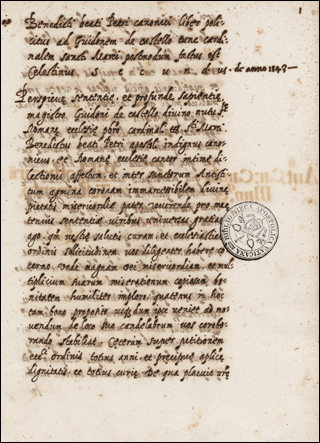 1
Benedicti beati Petri canonici liber poli-
citus ad Guidonem de castello tunc cardi-
nalem Sancti Marci postmodum factus est
Celestinus secundus. de anno 1143
Perspicue sententie, et profunde sapientie,
magistro Guidoni de castello divino nutu Ste
Romane ecclesie pbro cardinali tt. Sti Marci
Benedictus beati Petri apostoli indignus cano-
nicus, et Romane ecclesie cantor intime di-
lectionis affectum, et inter sanctorum
agmina coronam immarcescibilem divine
pietatis misericordie pater reverende pro
sententie viribus universas gratias
ago. qui vestre salutis curam, et ecclesiastici
ordinis solicitudinem vos diligenter habere
cerno. unde magnam Dei misericordiam, et mul-
tiplicum suarum miserationum copiosam bo-
nitatem humiliter imploro, quatenus in hoc
tam bono proposito usque dum ipse veniet ad mo-
vendum de loco suo candelabrum vos corobo-
rando stabiliat. Ceterum super petitionem
ecci. ordinis totius anni, et precipue aplice
dignitatis et totius curie. De qua placuit vre
BIBLIOTECA APOSTOLICA VATICANA